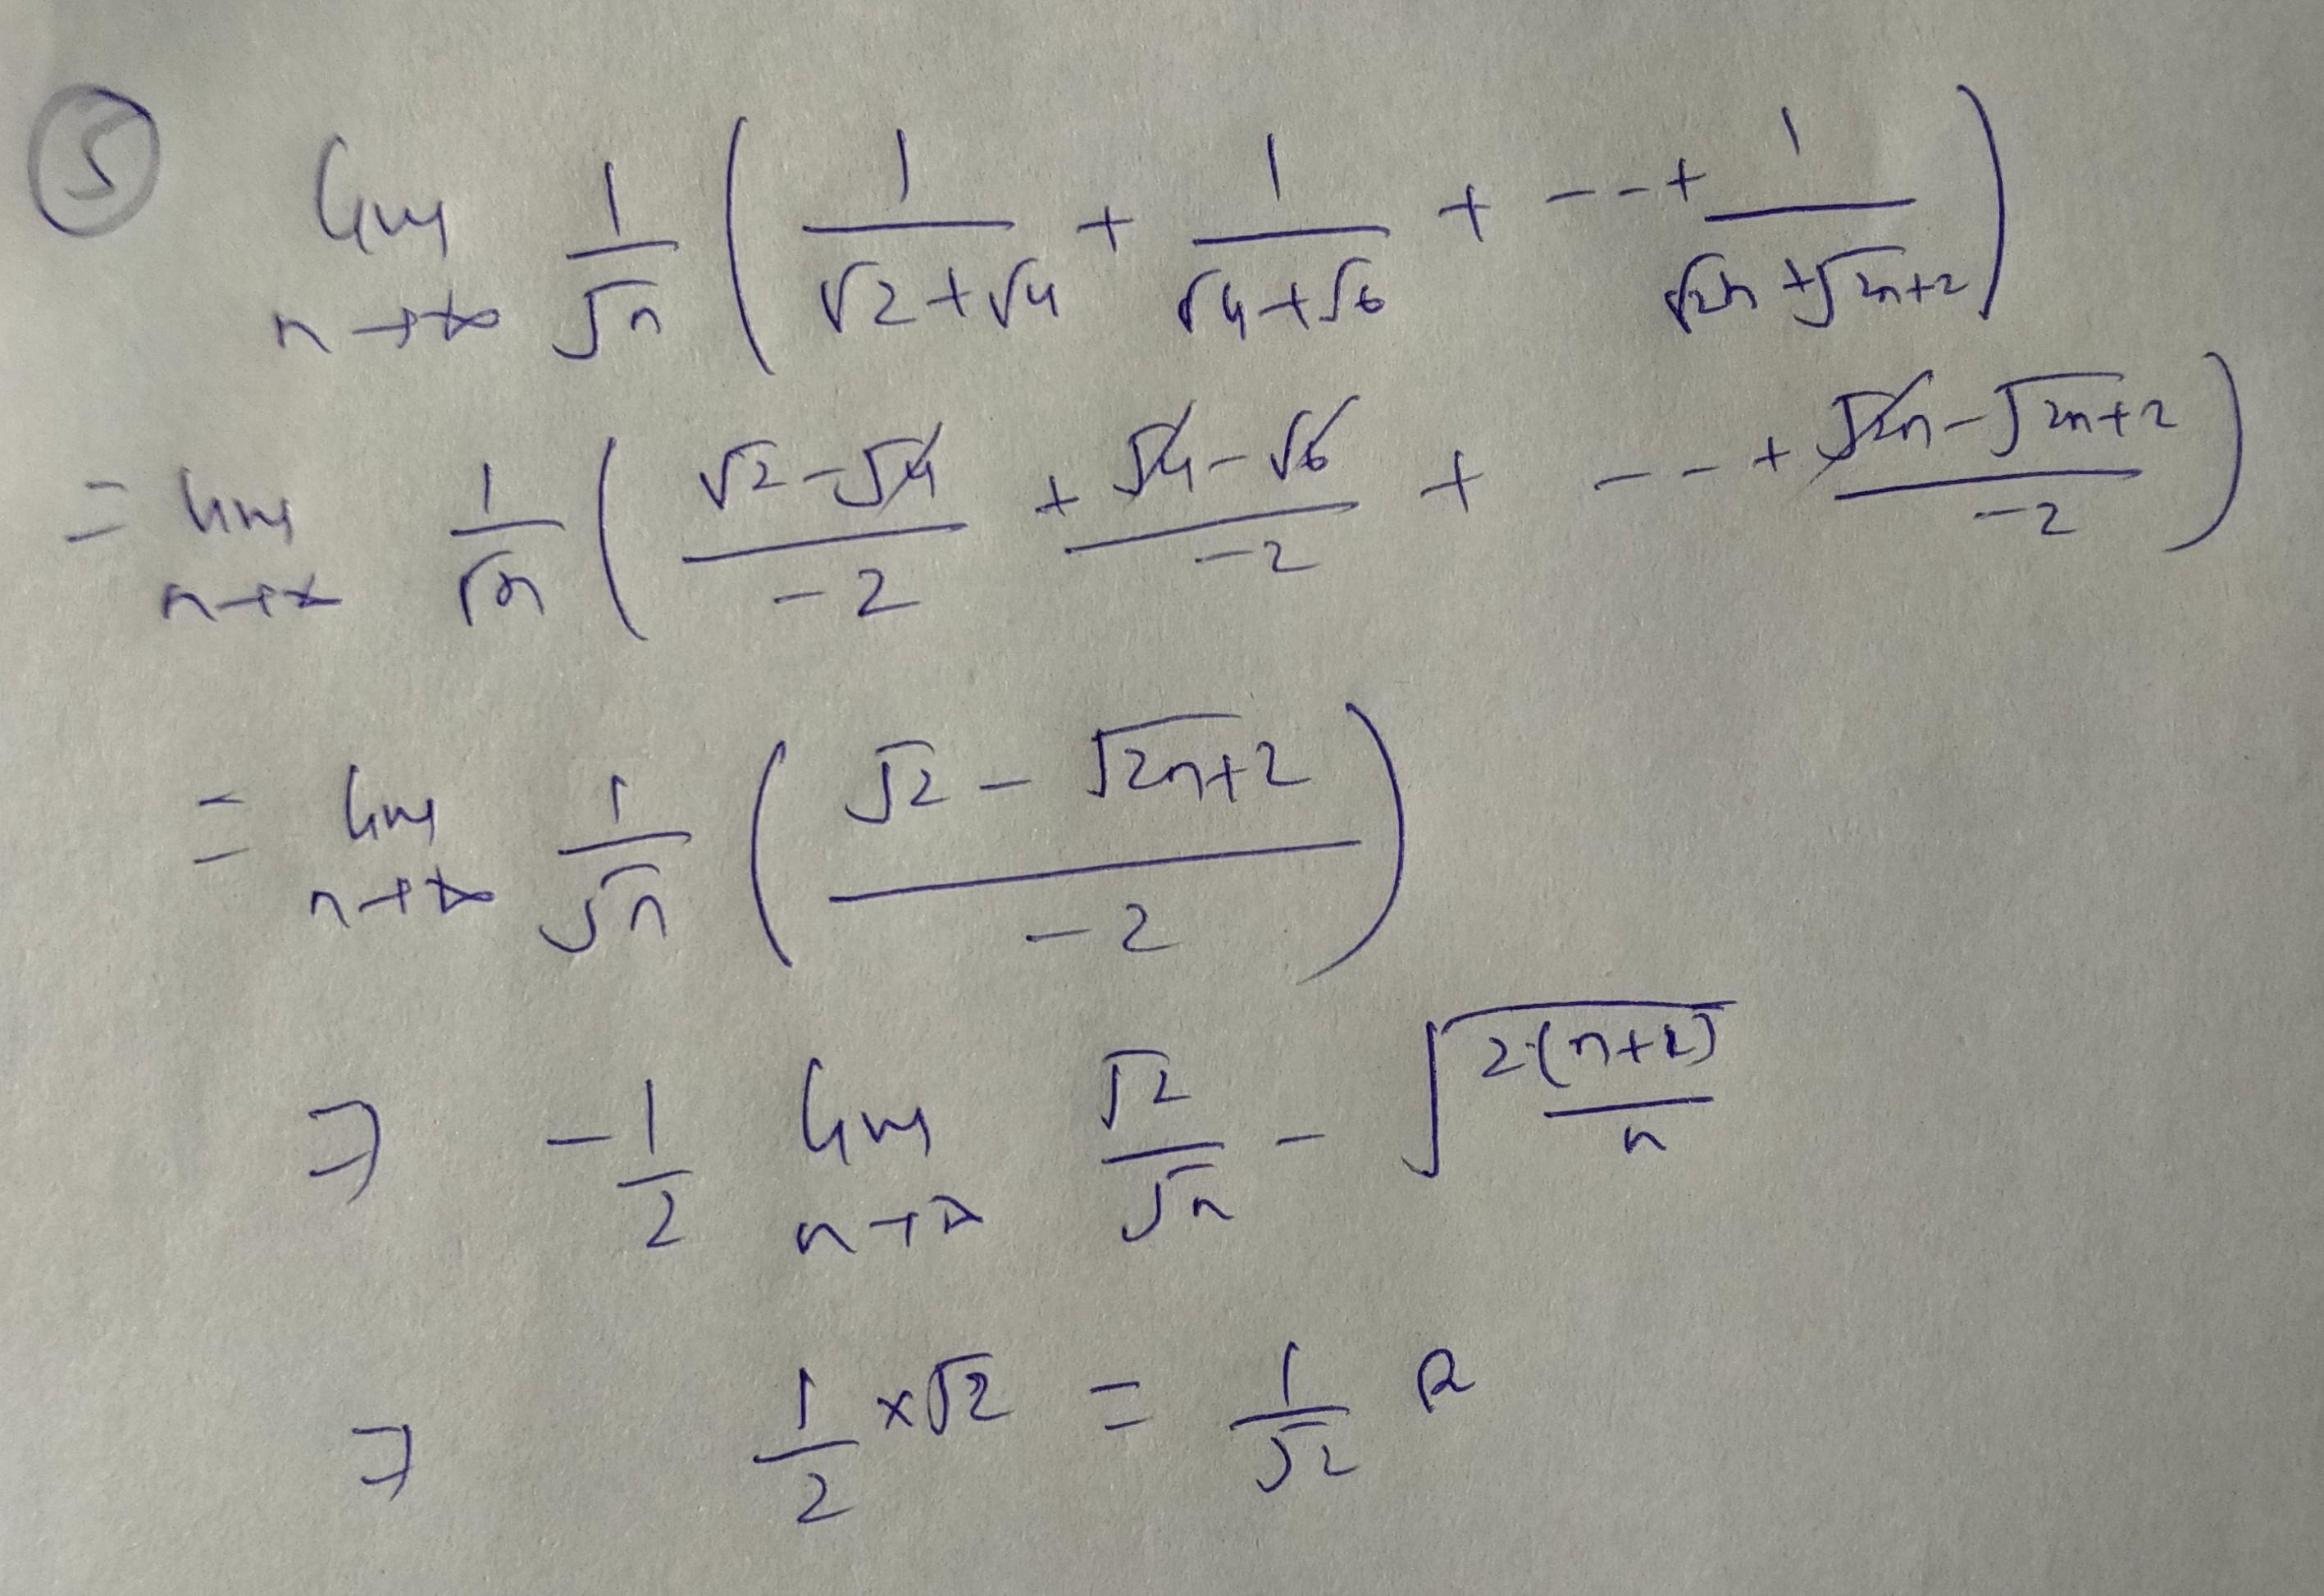 ⑤ lim n→∞ 1/√n ( 1/(√2+√4) + 1/(√4+√6) + ---+ 1/(√2n+√(2n+2)) )
= lim n→∞ 1/√n ( (√2-√4)/-2 + (√4-√6)/-2 + ---+ (√2n-√(2n+2))/-2 )
= lim n→∞ 1/√n ( (√2-√(2n+2))/-2 )
⇒ -1/2 lim n→∞ √2/√n - √(2(n+1)/n)
⇒ 1/2 ×√2 = 1/√2